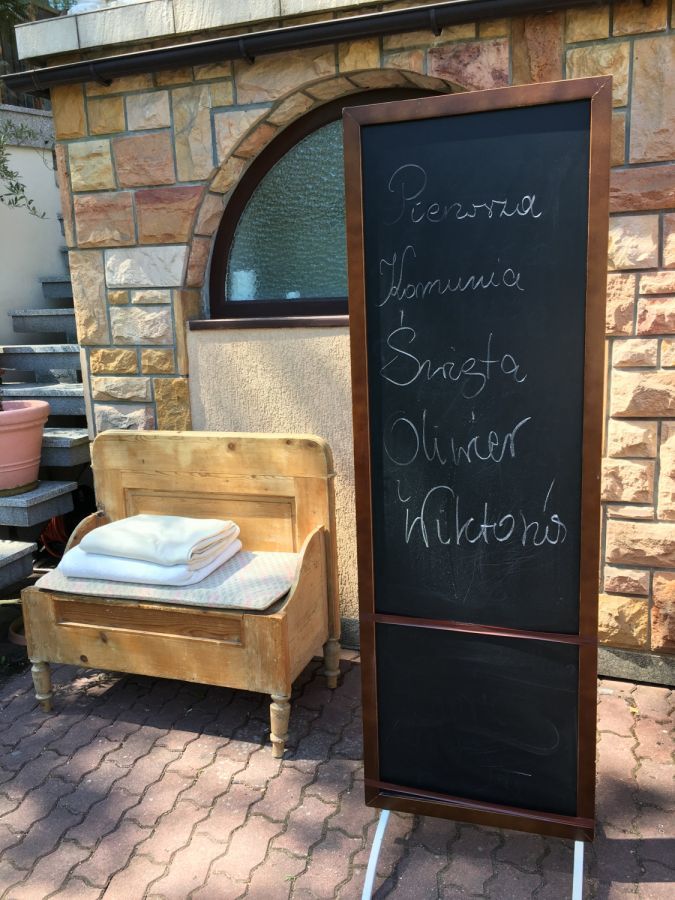 Pierwsza
Komunia
Święta
Oliwier
i
Wiktoria